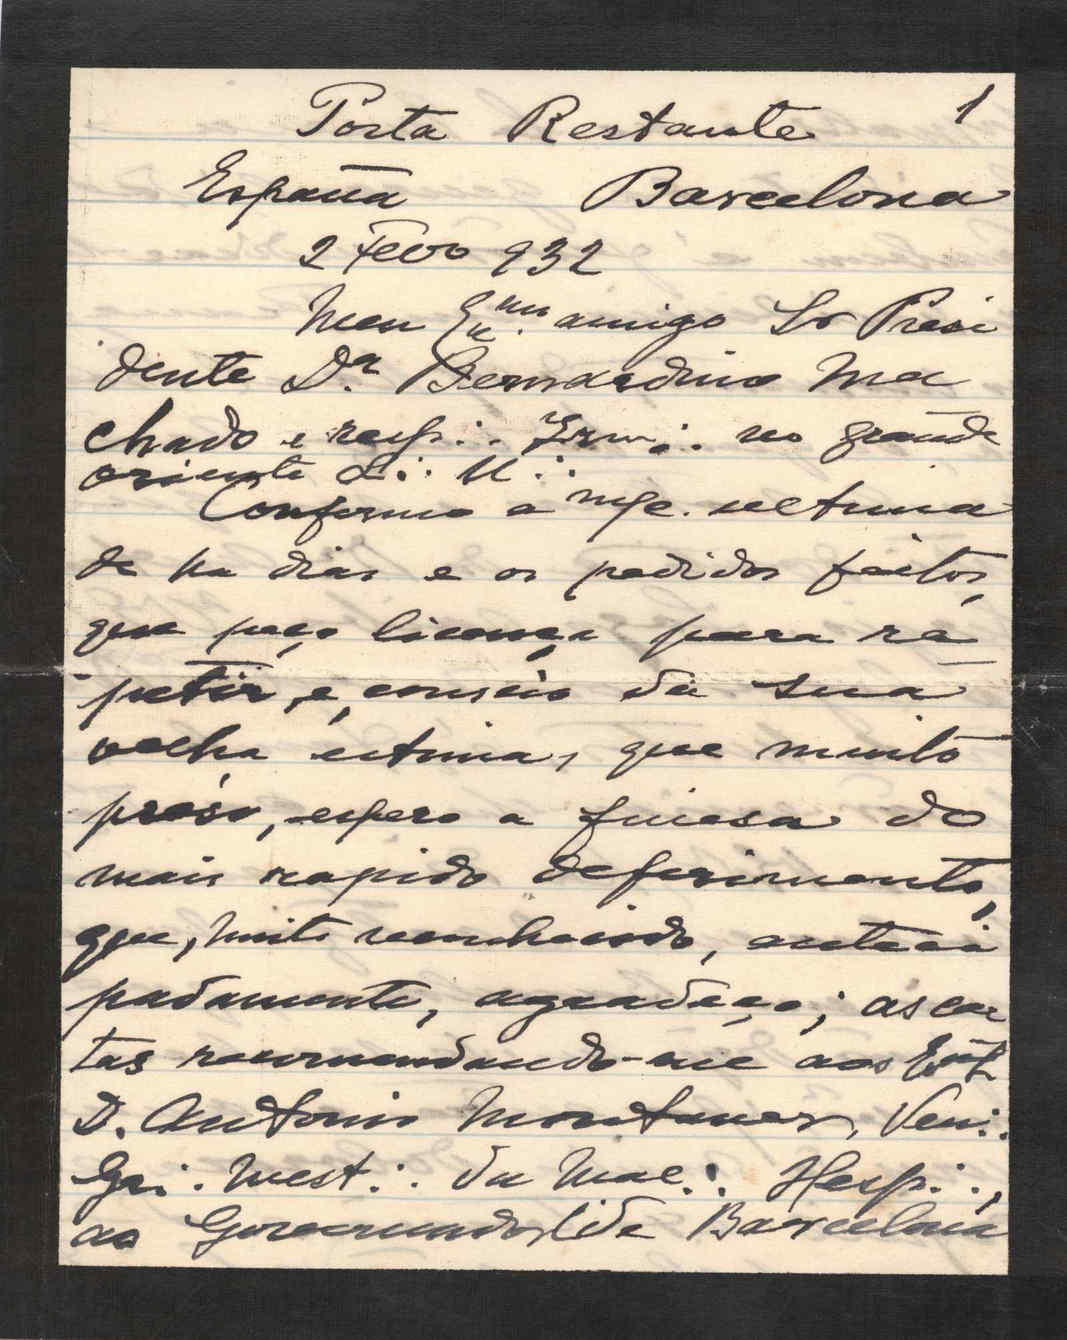 1
Posta Restante
España Barcelona
2 Fevº 932
Meu Exmº amigo Sr Presi
dente Dr. Bernardino Ma
chado e resp∴ Irm∴ no grande
oriente L∴ U∴
Conforme a mª. ultima
de ha dias e os pedidos feitos,
que peço licença para re
petir, e, conscio da sua
velha estima, que muito
préso, espero a finesa do
mais rapido deferimento,
que, muito reconhecido, anteci
padamente, agradeço; as car
tas recomendando-me aos
D. Antonio Montaner, Ven∴
Gr∴ Mest∴ da Maç∴ Hesp∴,
ao Governador de Barcelona